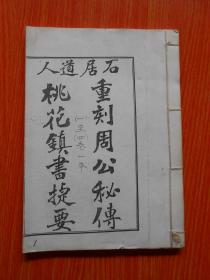 石居道人
重刻周公秘傳
(一至四卷一本)
桃花鎮書捷要
1